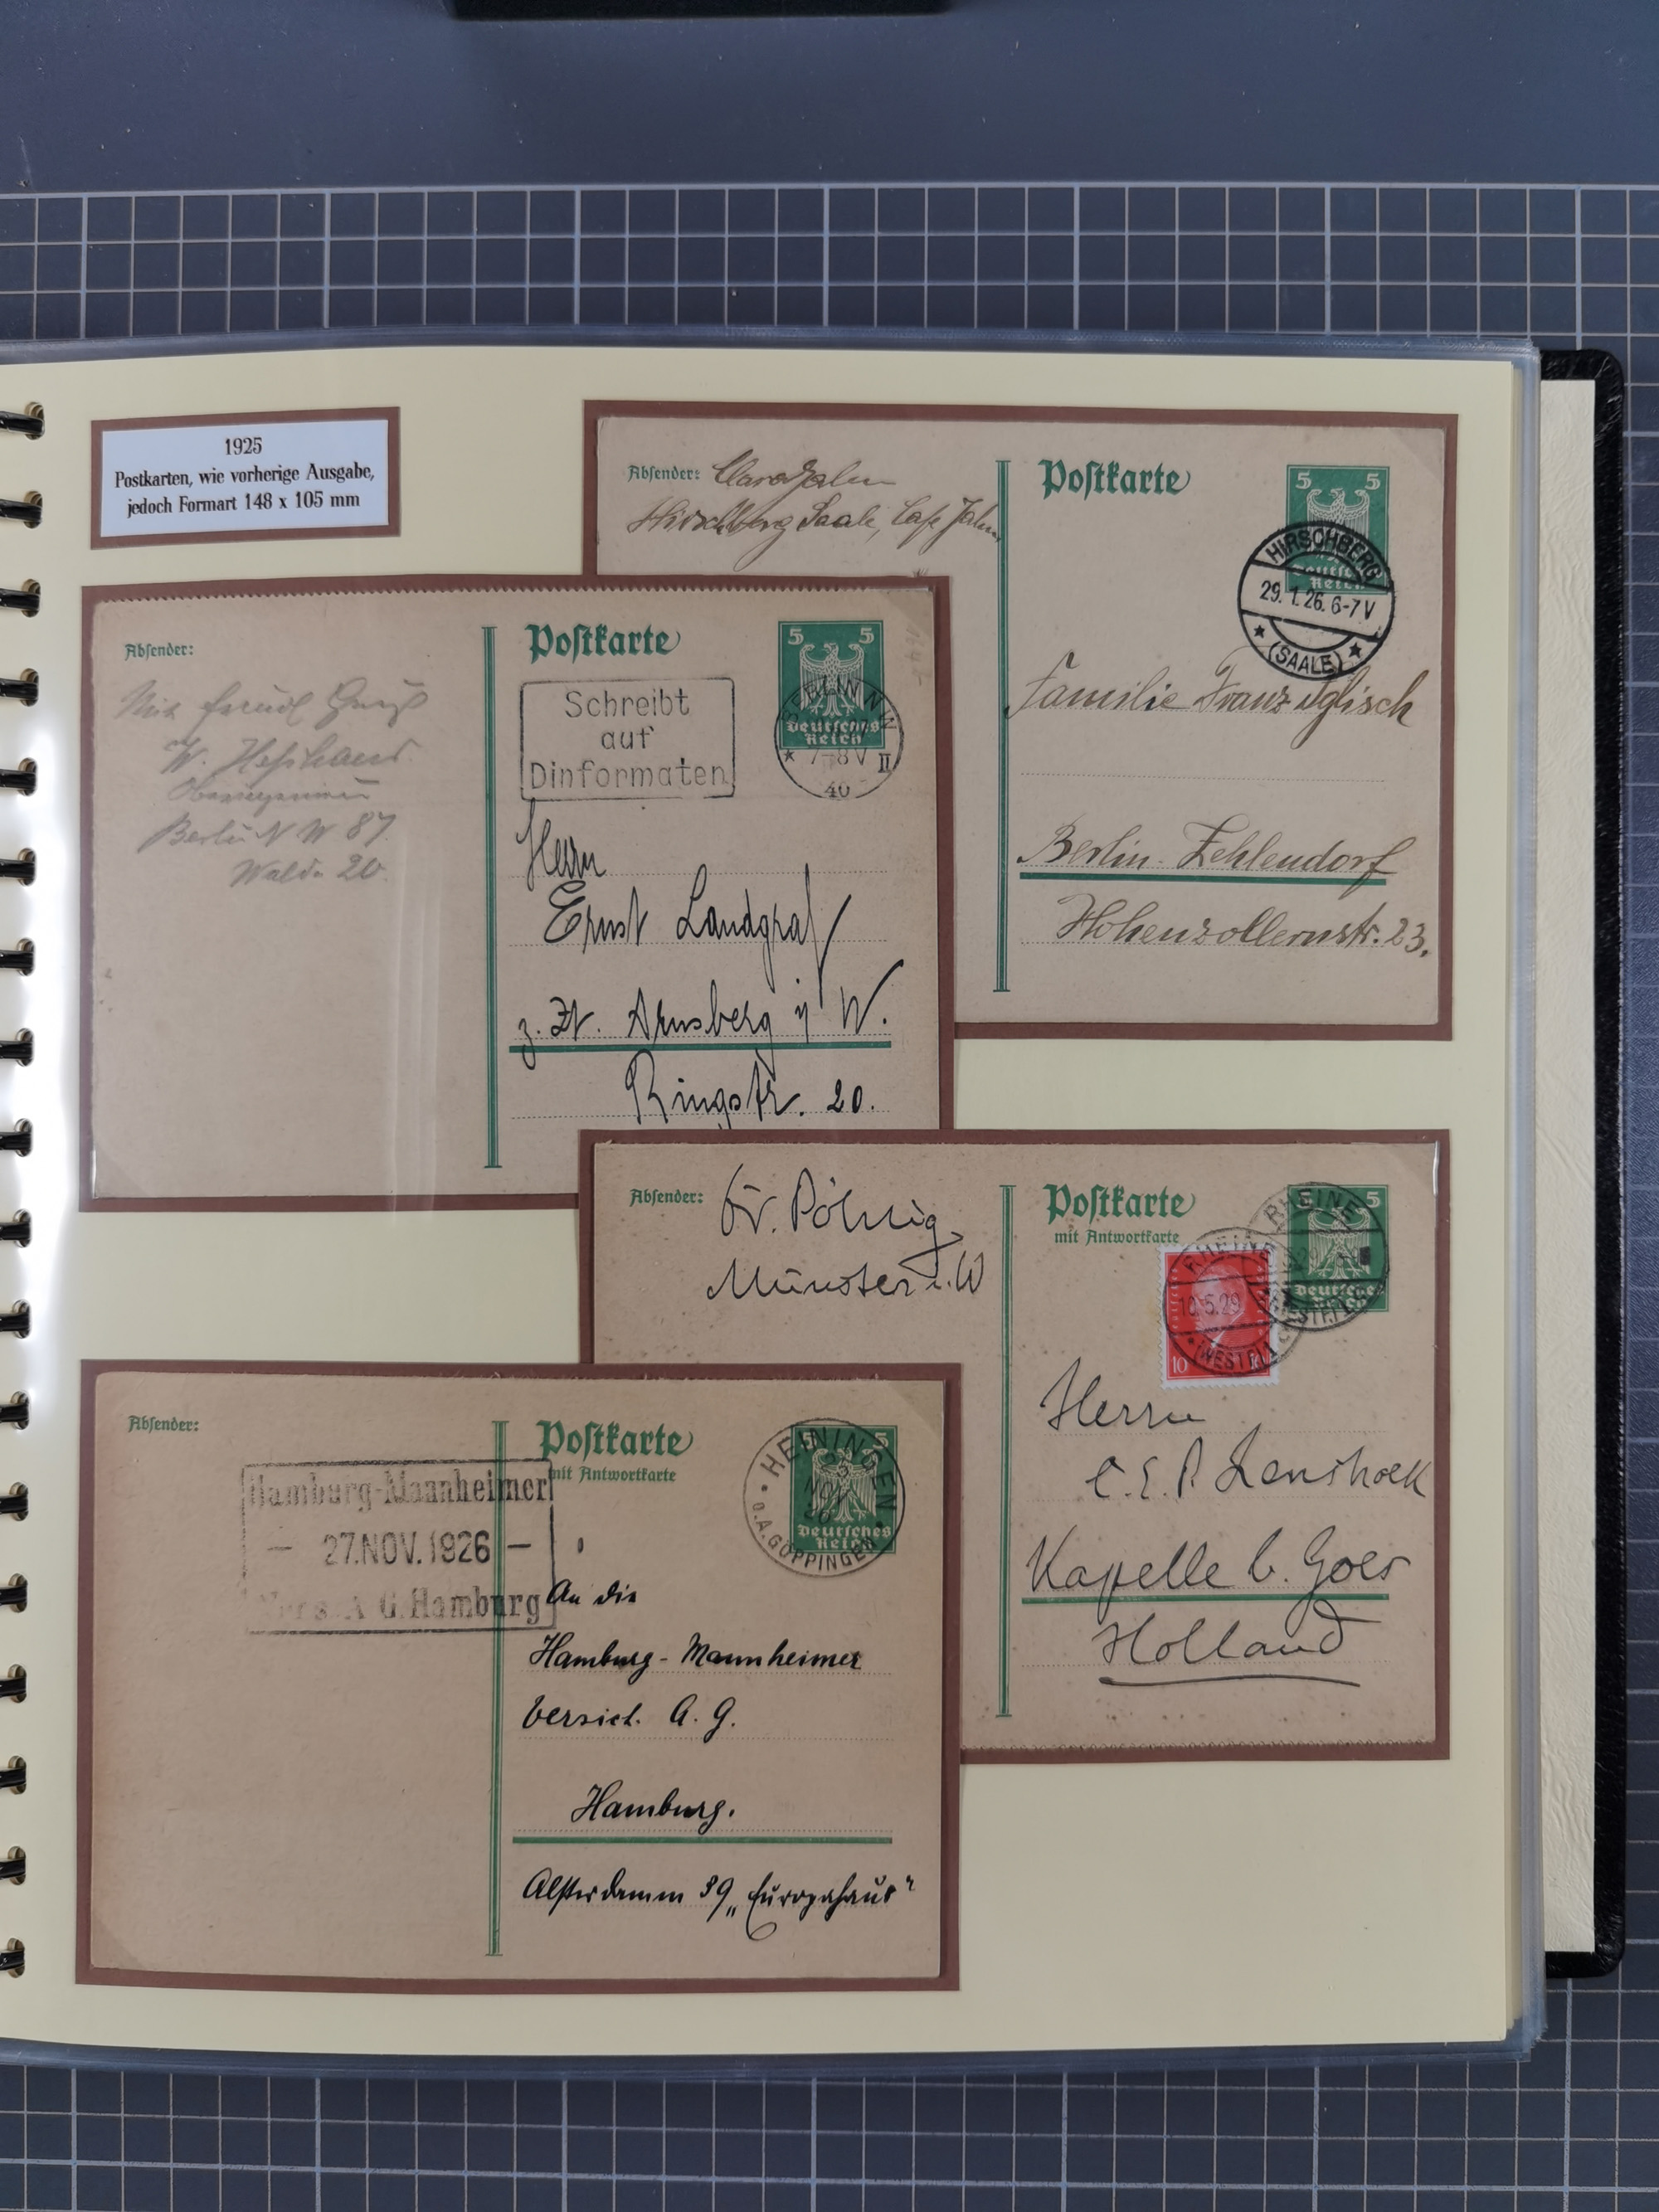 1925
Postkarten, wie vorherige Ausgabe,
jedoch Formart 148 x 105 mm
Absender:
Hirschberg Saale, Cafe Jahn
Postkarte
5 5
Deutsches
Reich
HIRSCHBERG
29.1.26.6-7V
(SAALE)
Familie Franz
Berlin-Zehlendorf
Hohenzollernstr. 23.
Absender:
Berlin N W 87
20
Postkarte
5 5
Deutsches
Reich
Schreibt
auf
Dinformaten
BERLIN NW
7-8V II
40
Herrn
Ernst Landgraf
z. Zt. Arnsberg i/ W.
Ringstr. 20.
Absender:
Münster i. W
Postkarte
mit Antwortkarte
5
Deutsches
Reich
RHEINE
RHEINE
10.5.29
(WESTF)
10 10
Herrn
C. E. P. Lenshoek
Kapelle b. Goes
Holland
Absender:
Postkarte
mit Antwortkarte
5 5
Deutsches
Reich
HEININGEN
NOV
26
O.A.GÖPPINGEN
Hamburg-Mannheimer
- 27.NOV.1926 -
Vers. A G. Hamburg
An die
Hamburg-Mannheimer
Versich. A. G.
Hamburg.
Alsterdamm 39 „Europahaus"